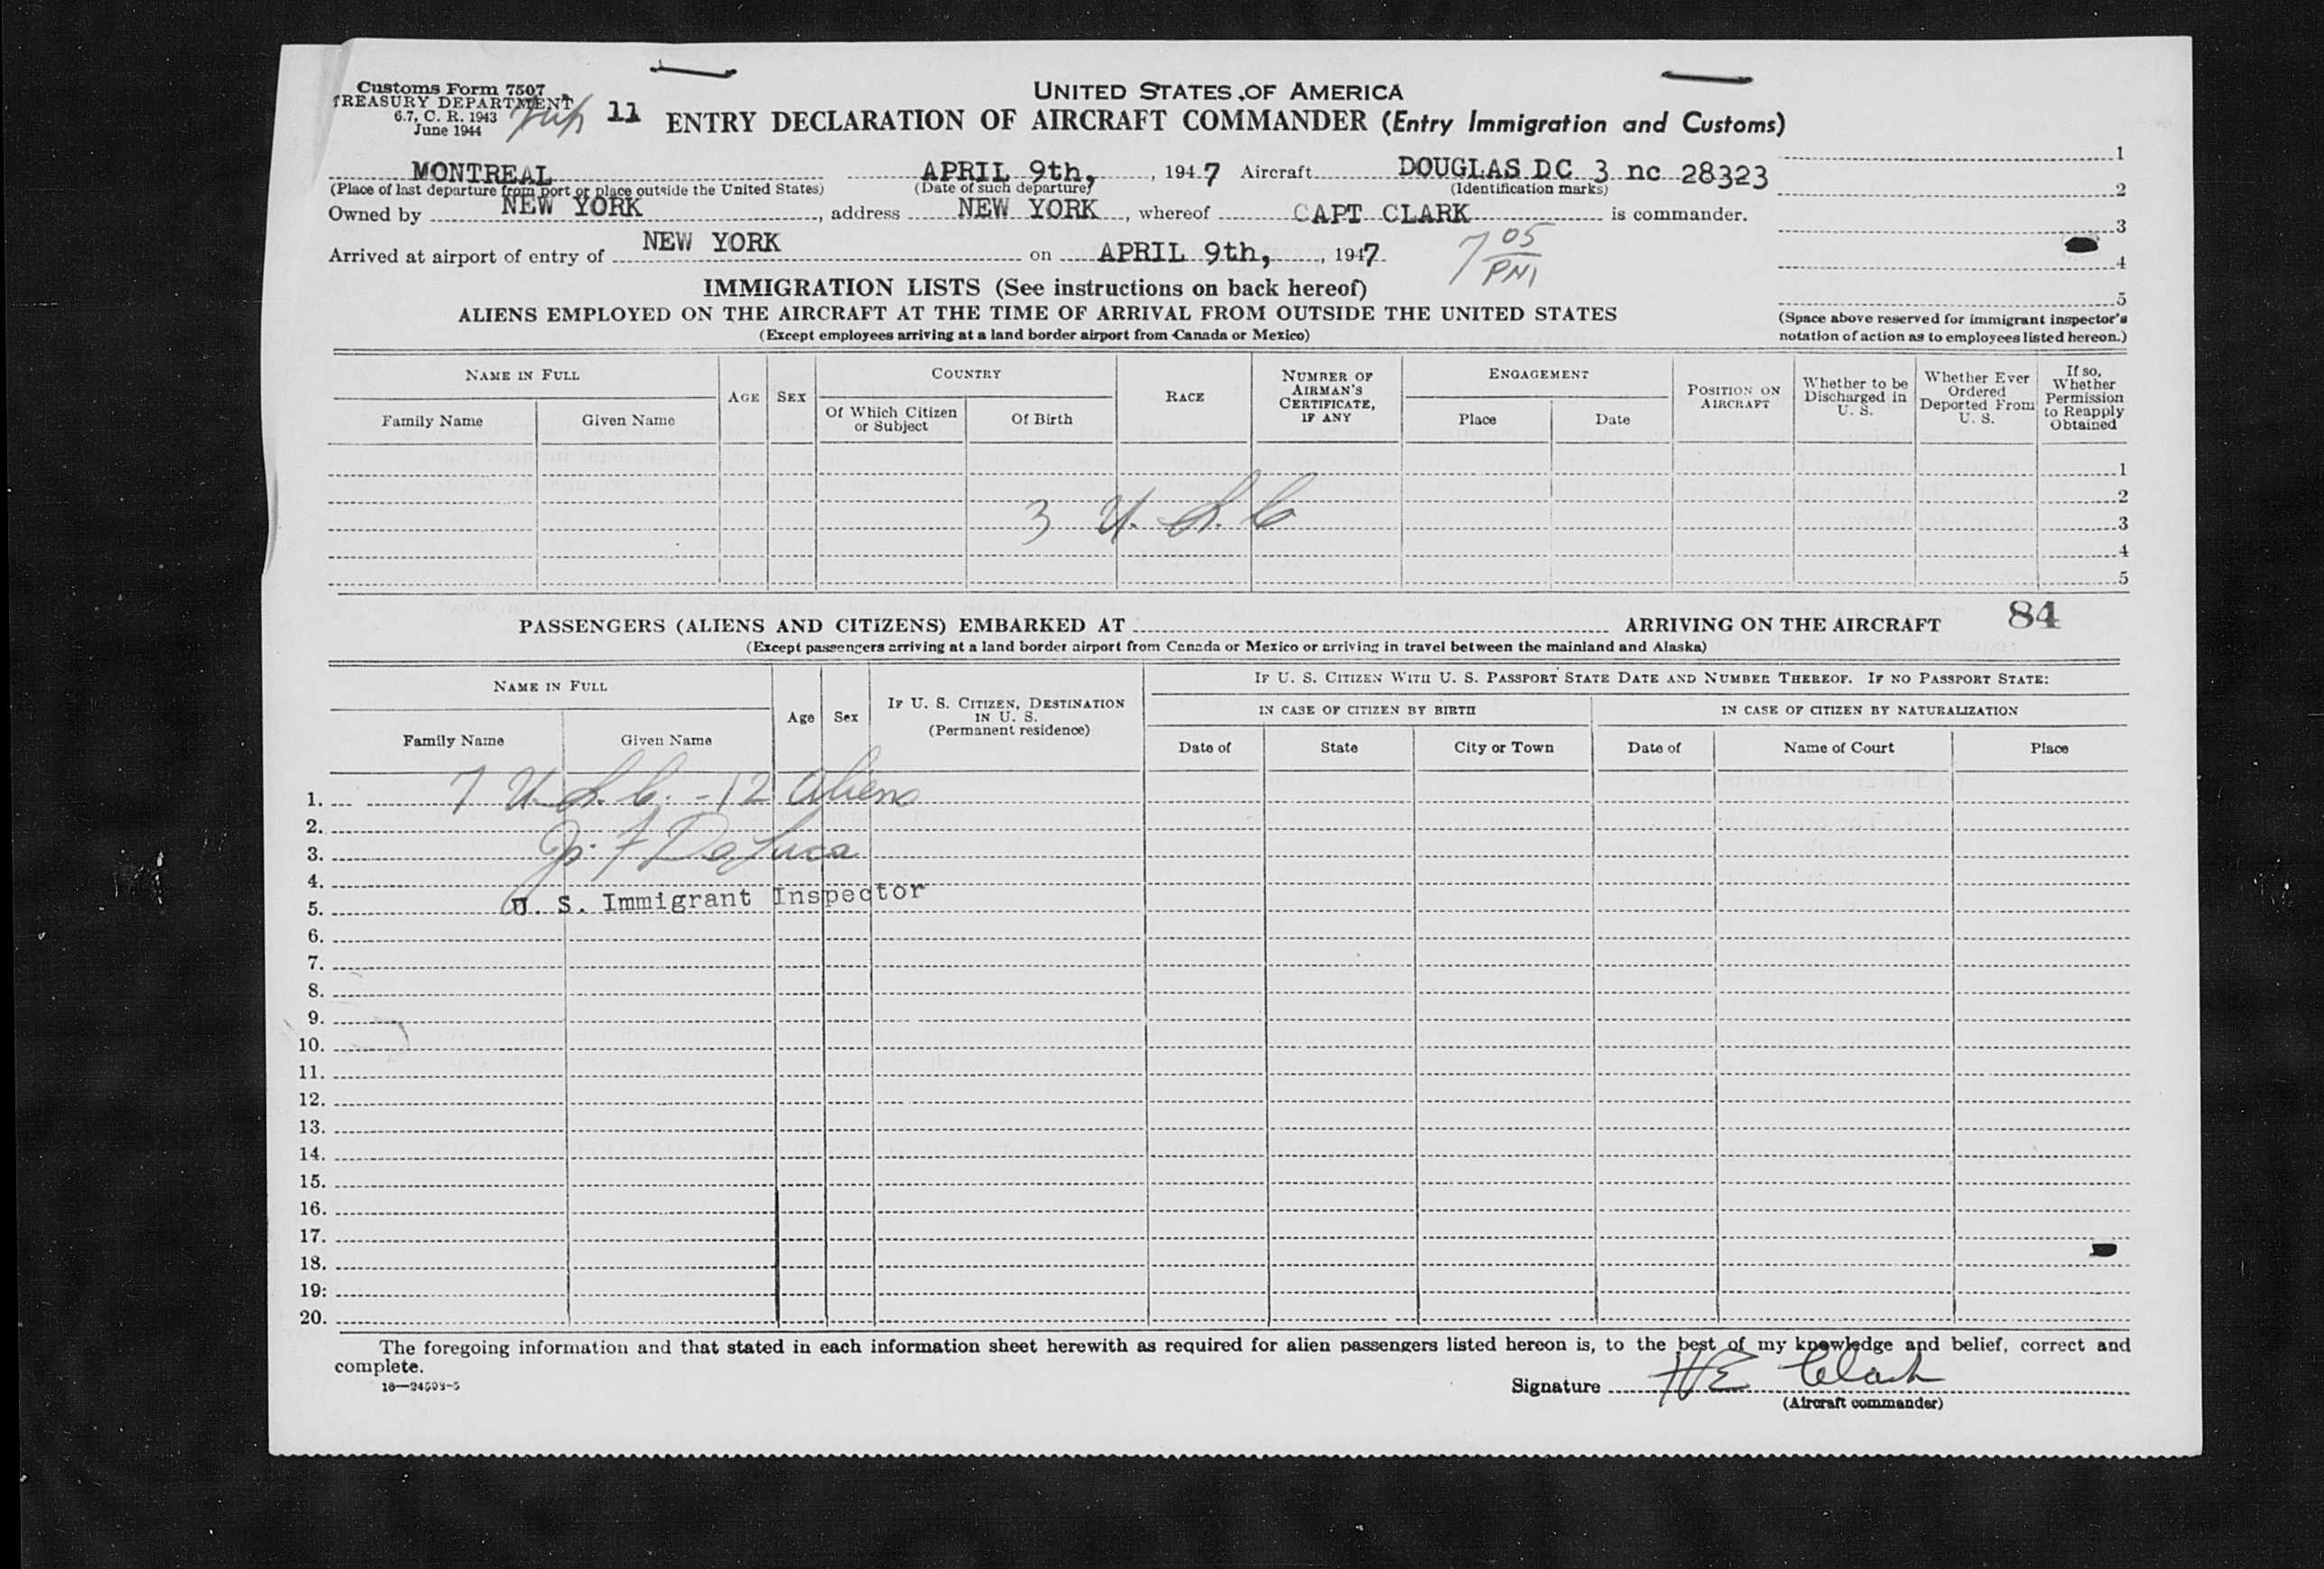 Customs Form 7507
TREASURY DEPARTMENT
6.7, C. R. 1943
June 1944
11
UNITED STATES OF AMERICA
ENTRY DECLARATION OF AIRCRAFT COMMANDER (Entry Immigration and Customs)
MONTREAL APRIL 9th, , 1947 Aircraft DOUGLAS DC 3 nc 28323
(Place of last departure from port or place outside the United States) (Date of such departure) (Identification marks)
Owned by NEW YORK , address NEW YORK , whereof CAPT CLARK is commander.
Arrived at airport of entry of NEW YORK on APRIL 9th, , 1947
7 05 PM
1
2
3
4
5
(Space above reserved for immigrant inspector's
notation of action as to employees listed hereon.)
IMMIGRATION LISTS (See instructions on back hereof)
ALIENS EMPLOYED ON THE AIRCRAFT AT THE TIME OF ARRIVAL FROM OUTSIDE THE UNITED STATES
(Except employees arriving at a land border airport from Canada or Mexico)
NAME IN FULL
Family Name
Given Name
AGE
SEX
COUNTRY
Of Which Citizen
or Subject
Of Birth
RACE
NUMBER OF
AIRMAN'S
CERTIFICATE,
IF ANY
ENGAGEMENT
Place
Date
POSITION ON
AIRCRAFT
Whether to be
Discharged in
U. S.
Whether Ever
Ordered
Deported From
U. S.
If so,
Whether
Permission
to Reapply
Obtained
1
2
3 U. S. C
3
4
5
PASSENGERS (ALIENS AND CITIZENS) EMBARKED AT ARRIVING ON THE AIRCRAFT 84
(Except passengers arriving at a land border airport from Canada or Mexico or arriving in travel between the mainland and Alaska)
NAME IN FULL
Family Name
Given Name
Age
Sex
IF U. S. CITIZEN, DESTINATION
IN U. S.
(Permanent residence)
IF U. S. CITIZEN WITH U. S. PASSPORT STATE DATE AND NUMBER THEREOF. IF NO PASSPORT STATE:
IN CASE OF CITIZEN BY BIRTH
IN CASE OF CITIZEN BY NATURALIZATION
Date of
State
City or Town
Date of
Name of Court
Place
1. 7 U. S. C. - 12 Aliens
2.
3. F DeLuca
4.
5. U. S. Immigrant Inspector
6.
7.
8.
9.
10.
11.
12.
13.
14.
15.
16.
17.
18.
19.
20.
The foregoing information and that stated in each information sheet herewith as required for alien passengers listed hereon is, to the best of my knowledge and belief, correct and
complete.
16—24503-5
Signature HE Clark
(Aircraft commander)